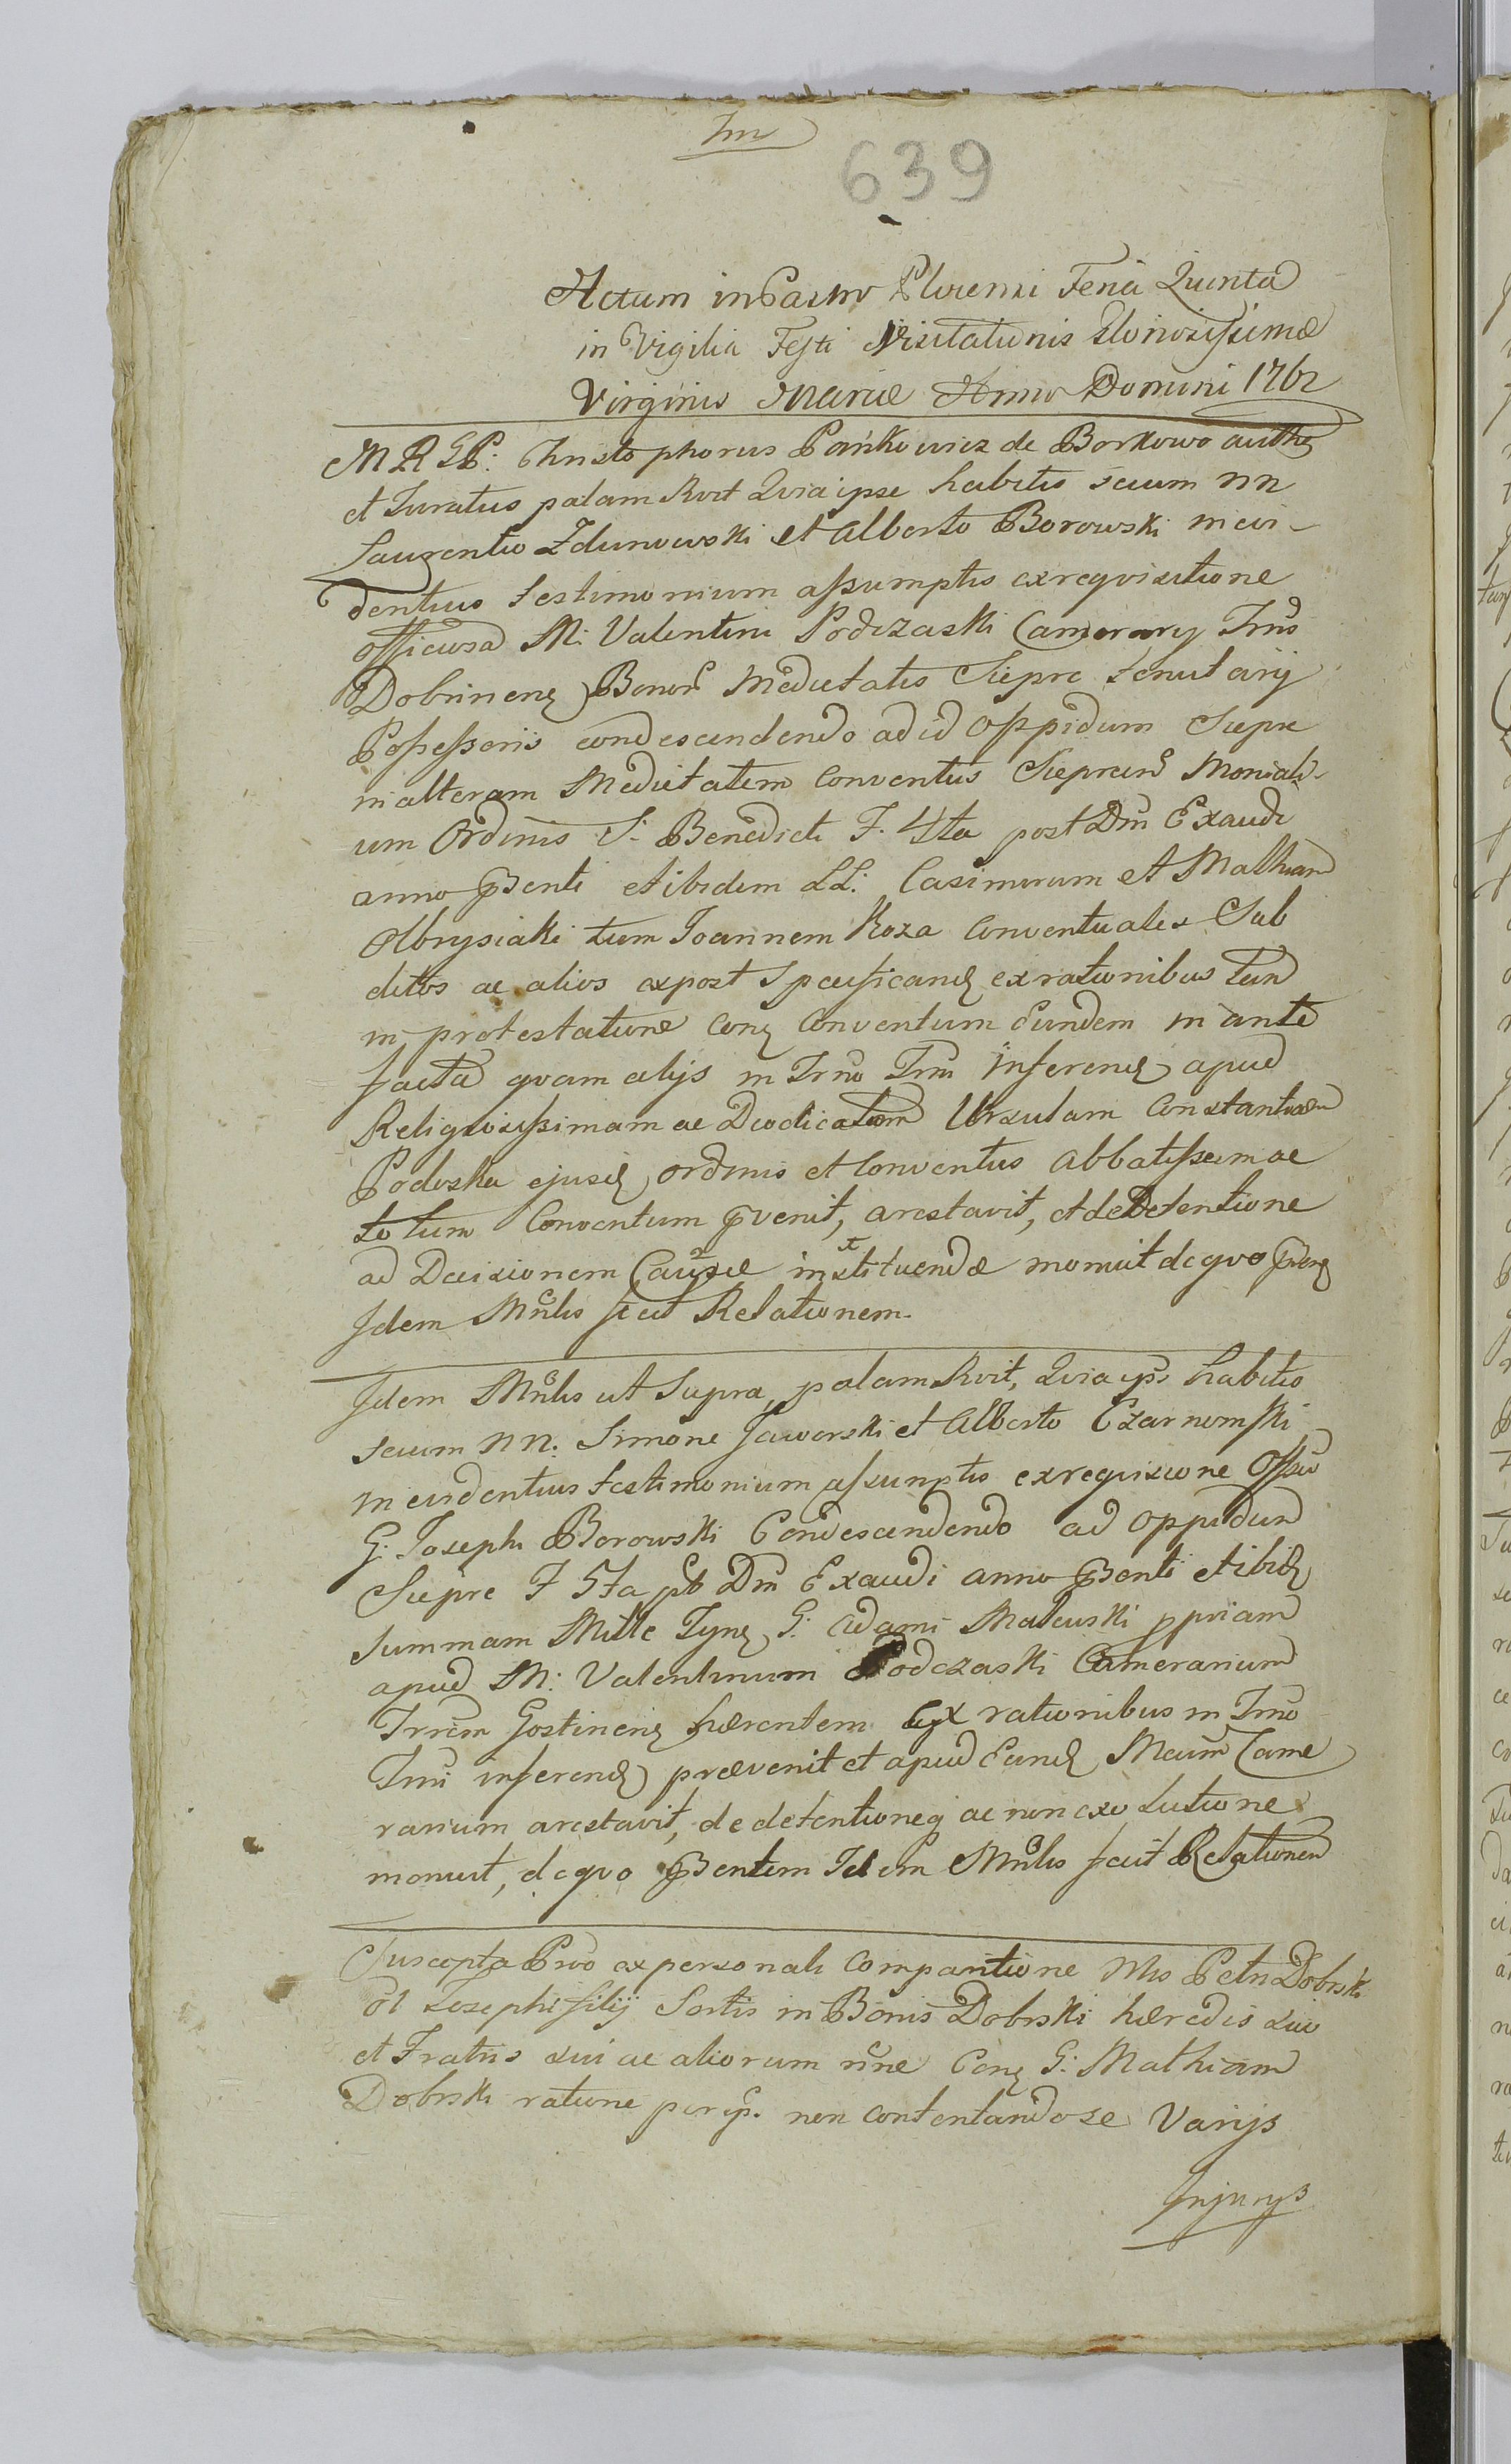 Im
639
Actum in Castro Plocensi Feria Quinta
in Vigilia Festi Visitationis Gloriosissimæ
Virginis Mariæ Anno Domini 1762
M R GP: Christophorus Pańkowicz de Borkowo auth
et Juratus palam Rvit Quia ipse habitis secum nn
Laurentio Zdunowski et Alberto Borowski in evi-
dentius testimonium assumptis ex requisitione
officiosa M: Valentini Podczaski Camerarij Trn̄s
Dobrinenſ Bonor̄ Medietatis Siepre tenutarij
Possessoris condescendendo ad id Oppidum Siepre
in alteram Medietatem Conventus Sieprcens Moniali-
um Ordinis S. Benedicti F. 4ta post Dm̄ Exaudi
anno p̄senti et ibidem LL. Casimirum et Mathiam
Olbrysiaki tum Joannem Koza Conventuales Sub
ditos ac alios expost Specificand ex rationibus tam
in protestatione Con Conventum Eundem in ante
facta quam alijs in Trn̄o Trn̄i inferend apud
Religiosissimam ac Deodicatam Ursulam Constantiam
Podoska ejusd ordinis et Conventus Abbatissam ac
totum Conventum p̄venit, arestavit, et de Detentione
ad Decisionem Causæ instituendæ monuit de quo p̄ns
Idem Mn̄lis fecit Relationem.
Idem Mn̄lis ut Supra, palam Rvit, Quia ips habitis
secum nn. Simone Jaworski et Alberto Czarnomski
in evidentius testimonium assumptis ex requisione Offsa
G. Joseph Borowski Condescendendo ad Oppidum
Siepre F 5ta pt Dm̄ Exaudi anno p̄senti et ibid
summam Mille Tyn G. Adami Mateuski ppriam
apud M: Valentinum Podczaski Camerarium
Trrem Gostinen hærentem ex rationibus in Trn̄o
Trn̄i inferend prævenit et apud Eund Mcum Came
rarium arestavit, de detentioneq ac non exo lutione
monuit, de quo p̄sentem Idem Mn̄lis fecit Relationem
Suscepta Pro ex personali Comparitione Nlis Petri Dobrski
ol Josephi filij Sortis in Bonis Dobrski hæredis suo
et Fratris sui ac aliorum n̄ne Con G. Mathiam
Dobrski ratione pr ip. non contentando se Varijs
Injurijs